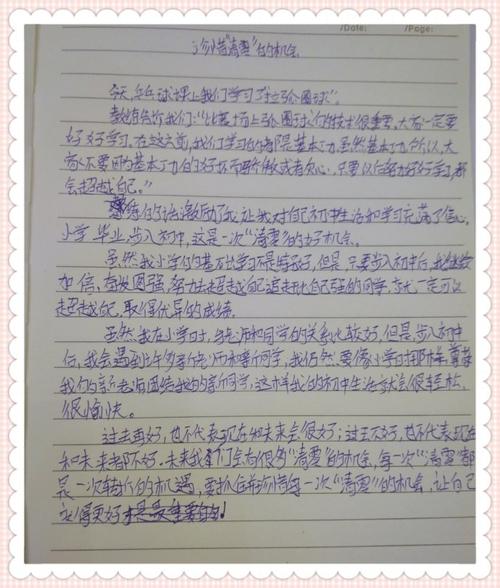 珍惜"清零"的机会
Date: Page:
今天,乒乓球课上我们学习了"拉弧圈球"。
教练告诉我们:"比赛场上弧圈球的技术很重要,大家一定要
好好学习。在这之前,我们学习的都是基本功,虽然基本功,大
家不要因为基本功的好坏而骄傲或者灰心。只要以后努力好好学习,都
会超越自己。"
教练的话激励了我,让我对自己初中生活和学习充满了信心。
小学毕业,步入初中,这是一次"清零"的好机会。
虽然我小学的基础学习不是特别好,但是,只要步入初中后,我继续
加倍,奋发图强,努力去超越自己追赶比自己强的同学,就一定可以
超越自己,取得优异的成绩。
虽然我在小学时,与老师和同学的关系比较好,但是,步入初中
后,我会遇到许多新老师和新同学,我仍然要像小学时那样,尊尊
我们的新老师团结我的新同学,这样我的初中生活就会很轻松、
很愉快。
过去再好,也不代表现在和未来会很好;过去不好,也不代表现在
和未来都不好。未来我们会有很多"清零"的机会,每一次"清零"都
是一次转折的机遇,要抓住并珍惜每一次"清零"的机会,让自己
变得更好才是最重要的!